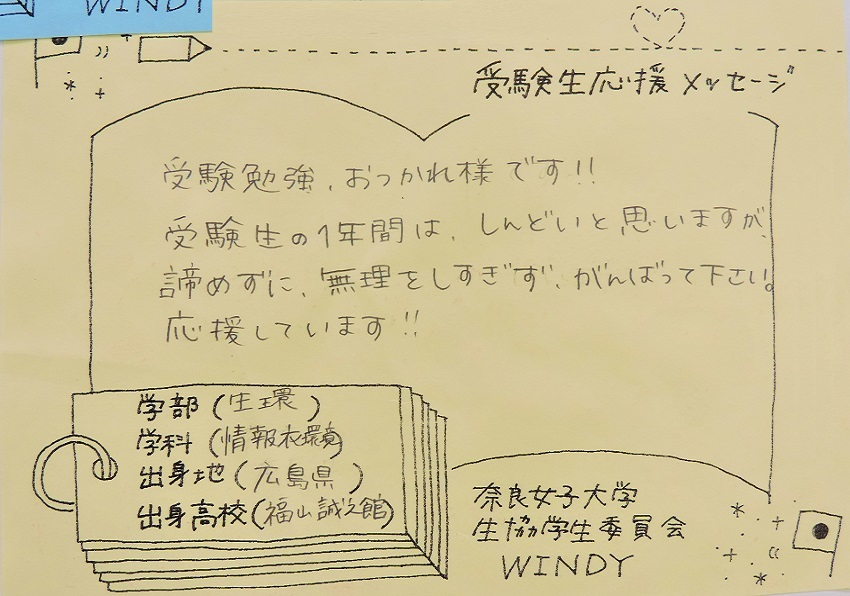 WINDY
受験生応援メッセージ
受験勉強、おつかれ様です!!
受験生の1年間は、しんどいと思いますが、
諦めずに、無理をしすぎず、がんばって下さい。
応援しています!!
学部(生環)
学科(情報衣環境)
出身地(広島県)
出身高校(福山誠之館)
奈良女子大学
生協学生委員会
WINDY